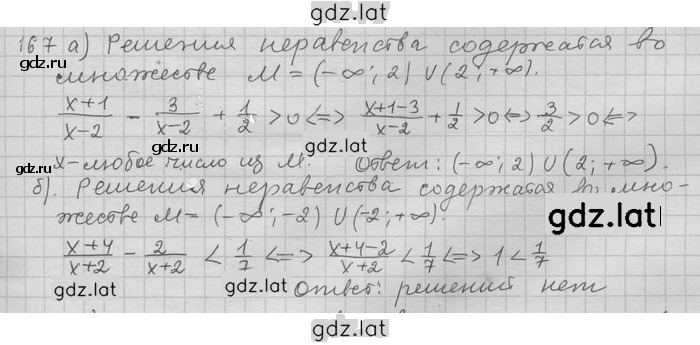 gdz.lat
167 а) Решения неравенства содержатся во
множестве M = (-∞; 2) ∪ (2; +∞).
gdz.lat
(x+1)/(x-2) - 3/(x-2) + 1/2 > 0 <=> (x+1-3)/(x-2) + 1/2 > 0 <=> 3/2 > 0 <=>
x - любое число из M. Ответ: (-∞; 2) ∪ (2; +∞).
gdz.lat
б). Решения неравенства содержатся во мно-
жестве M = (-∞; -2) ∪ (-2; +∞).
gdz.lat
(x+4)/(x+2) - 2/(x+2) < 1/7 <=> (x+4-2)/(x+2) < 1/7 <=> 1 < 1/7
gdz.lat
Ответ: решений нет
gdz.lat